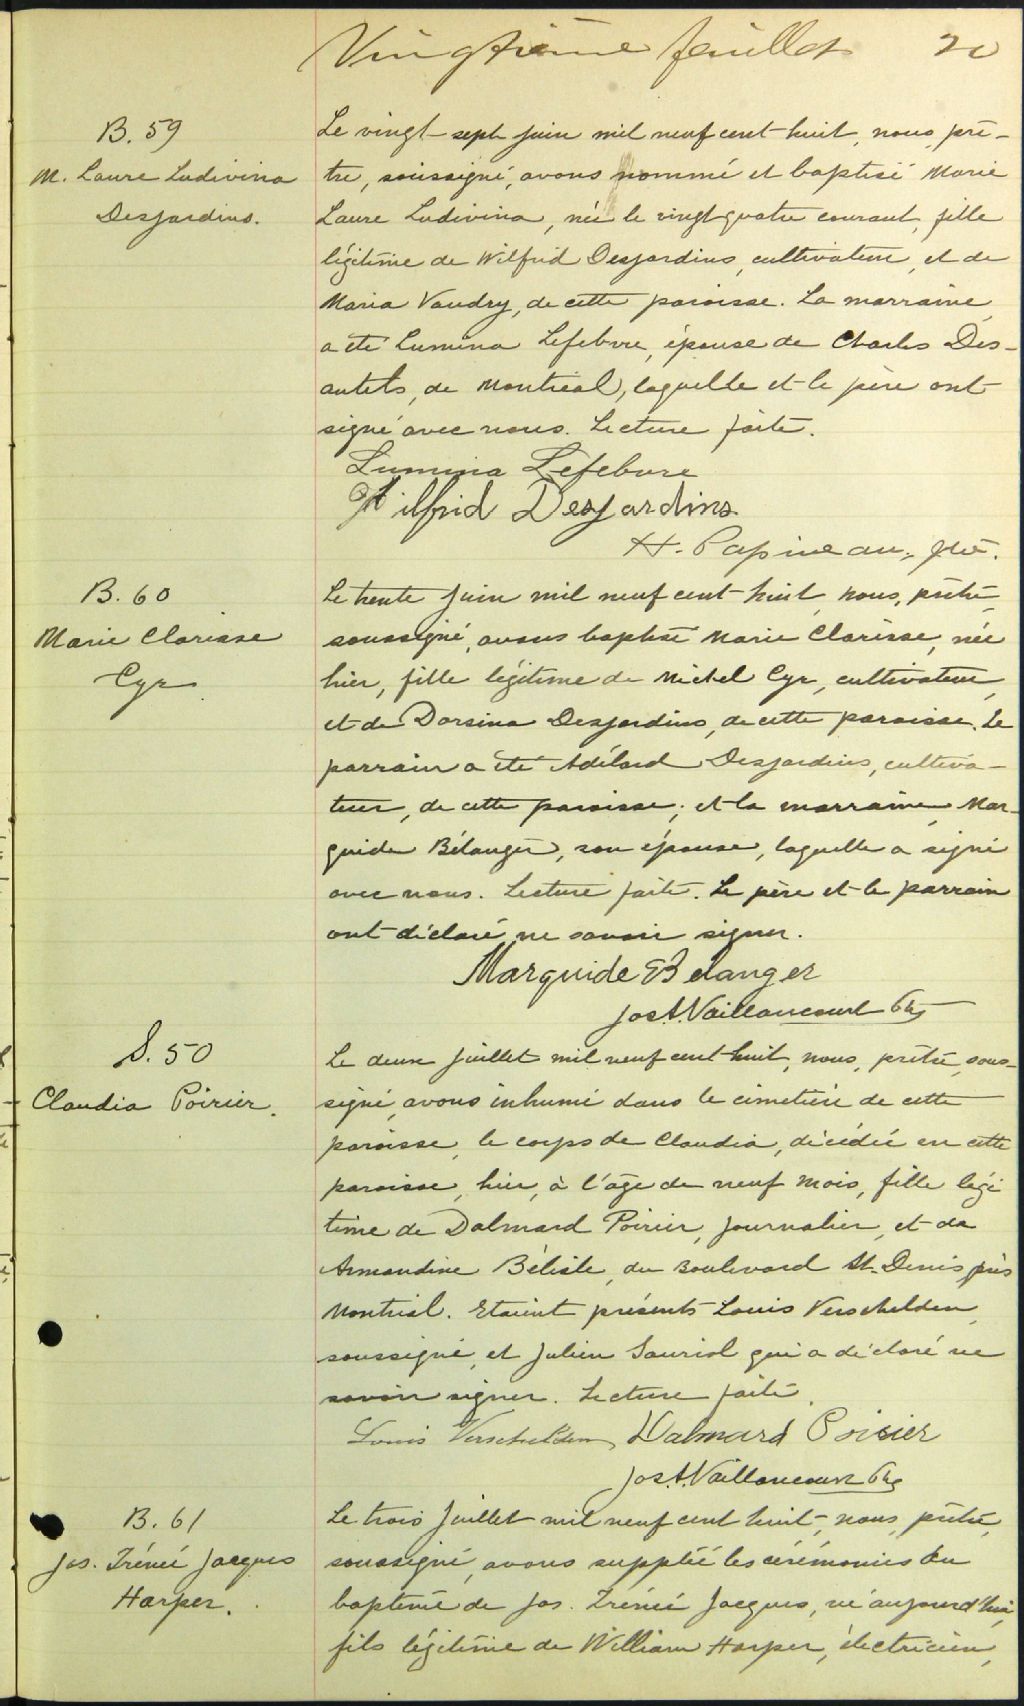 Vingtième feuillet 20
B. 59
M. Laure Ludivina
Desjardins.
Le vingt-sept juin mil neuf cent-huit, nous, prê-
tre, soussigné, avons nommé et baptisé Marie
Laure Ludivina, née le vingt-quatre courant, fille
légitime de Wilfrid Desjardins, cultivateur, et de
Maria Vaudry, de cette paroisse. La marraine
a été Lumina Lefebvre, épouse de Charles Des-
autels, de Montréal, laquelle et le père ont
signé avec nous. Lecture faite.
Lumina Lefebvre
Wilfrid Desjardins
H. Papineau, ptre.
B. 60
Marie Clarisse
Cyr
Le trente juin mil neuf cent-huit, nous, prêtre,
soussigné, avons baptisé Marie Clarisse, née
hier, fille légitime de Michel Cyr, cultivateur,
et de Dorsina Desjardins, de cette paroisse. Le
parrain a été Adélard Desjardins, cultiva-
teur, de cette paroisse, et la marraine, Mar-
guide Bélanger, son épouse, laquelle a signé
avec nous. Lecture faite. Le père et le parrain
ont déclaré ne savoir signer.
Marguide Belanger
Jos.A. Vaillancourt Ptre
S. 50
Claudia Poirier.
Le deux juillet mil neuf cent-huit, nous, prêtre, sous-
signé, avons inhumé dans le cimetière de cette
paroisse, le corps de Claudia, décédée en cette
paroisse, hier, à l'âge de neuf mois, fille légi
time de Dalmard Poirier, journalier, et de
Armandine Bélisle, du Boulevard St-Denis près
Montréal. Etaient présents Louis Verschelden,
soussigné, et Julien Sauriol qui a déclaré ne
savoir signer. Lecture faite.
Louis Verschelden, Dalmard Poirier
Jos.A. Vaillancourt Ptre
B. 61
Jos. Irénée Jacques
Harper.
Le trois juillet mil neuf cent huit, nous, prêtre,
soussigné, avons suppléé les cérémonies du
baptême de Jos. Irénée Jacques, né aujourd'hui,
fils légitime de William Harper, électricien,